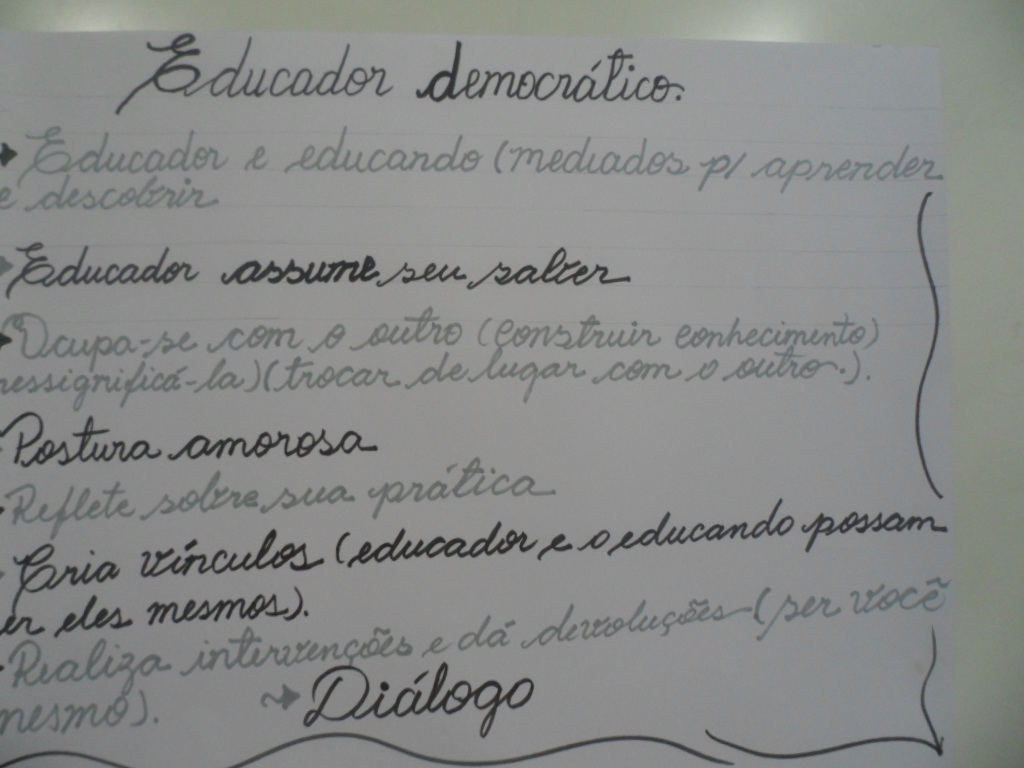 Educador democrático.
Educador e educando (mediados p/ aprender
e descobrir
Educador assume seu saber
Ocupa-se com o outro (construir conhecimento)
ressignificá-la) (trocar de lugar com o outro.).
Postura amorosa
Reflete sobre sua prática
Cria vínculos (educador e o educando possam
er eles mesmos).
Realiza intervenções e dá devoluções (ser você
mesmo).
Diálogo